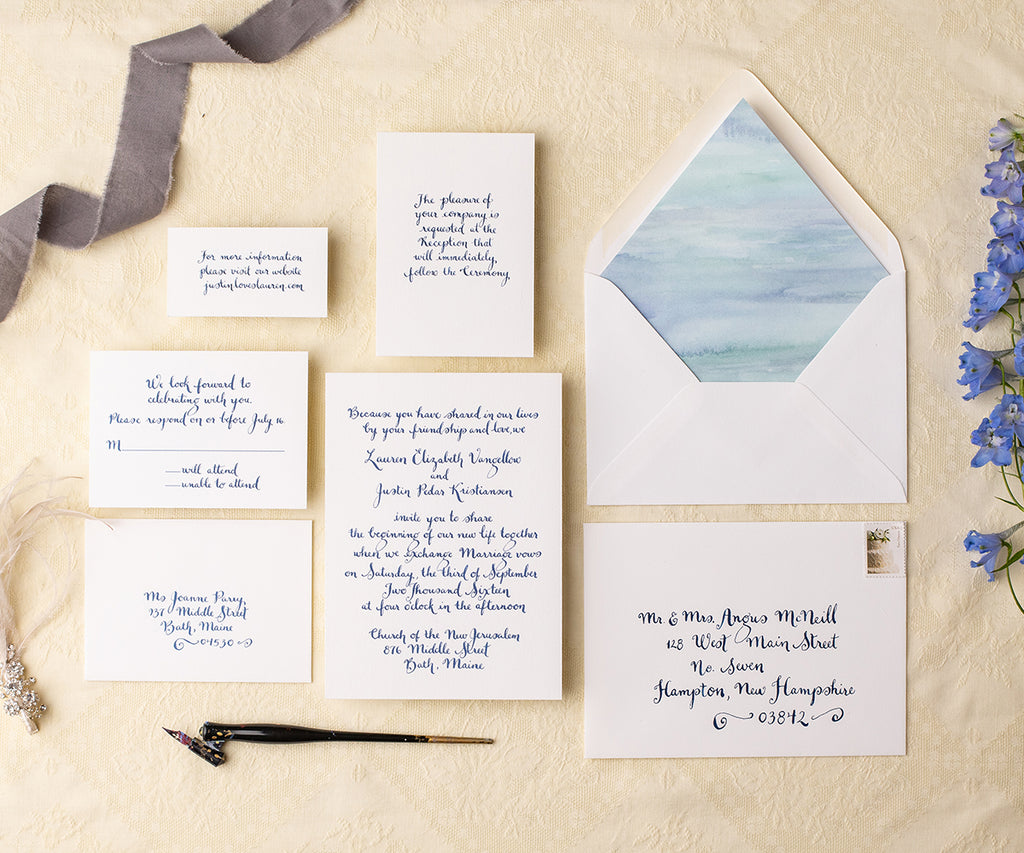 The pleasure of
your company is
requested at the
Reception that
will immediately,
follow the Ceremony.
For more information
please visit our website
justinloveslauren.com
We look forward to
celebrating with you.
Please respond on or before July 16.
M
will attend
unable to attend
Because you have shared in our lives
by your friendship and love, we
Lauren Elizabeth Vangellow
and
Justin Pedar Kristiansen
invite you to share
the beginning of our new life together
when we exchange Marriage vows
on Saturday, the third of September
Two Thousand Sixteen
at four o'clock in the afternoon
Church of the New Jerusalem
876 Middle Street
Bath, Maine
Ms Joanne Parry,
937 Middle Street
Bath, Maine
04530
Mr & Mrs. Angus McNeill
128 West Main Street
No. Seven
Hampton, New Hampshire
03842